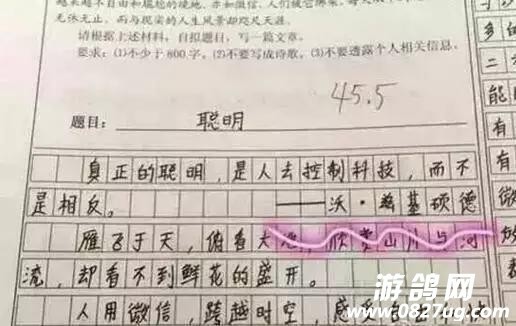 越来越不自由和尴尬的境地。亦如微信,人们被它绑架,
无休无止,而与现实的人生风景却咫尺天涯。
请根据上述材料,自拟题目,写一篇文章。
要求:(1)不少于800字,(2)不要写成诗歌,(3)不要透露个人相关信息。
45.5
题目: 聪明
真正的聪明,是人去控制科技,而不
是相反。
——沃·兹基硕德
雁飞于天,俯看大地,欣赏山川与河
流,却看不到鲜花的盛开。
人用微信 跨越时空
乡
的
二
能
有
有
微
游鸽网
www.0827ug.com